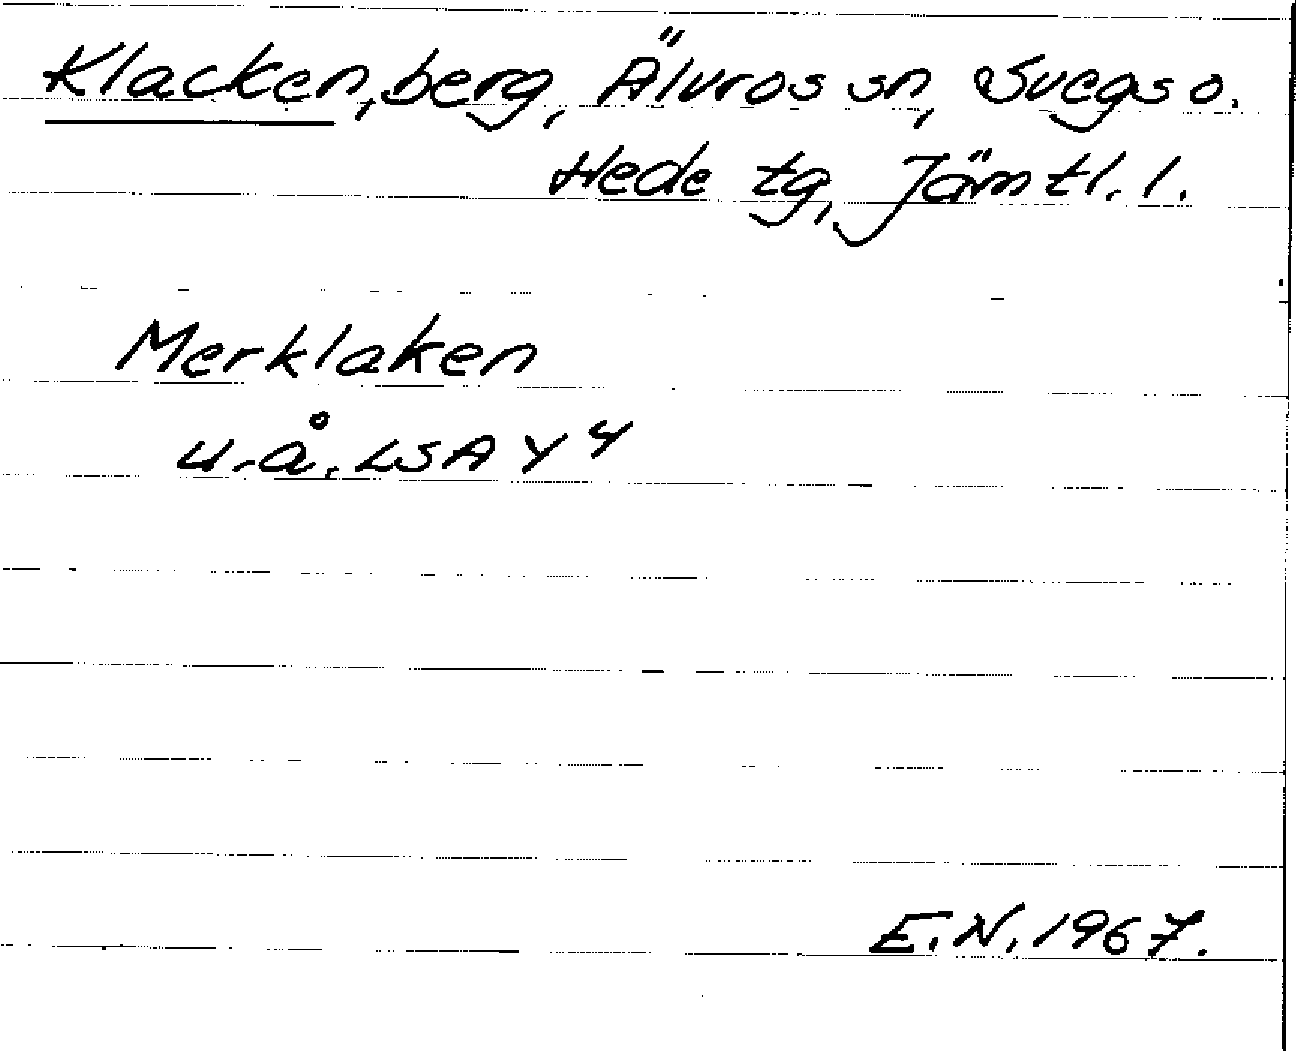 Klacken, berg, Älvros sn, Svegs o.
Hede tg, Jämtl. l.
Merklaken
u.å. LSA Y 4
E.N. 1967.